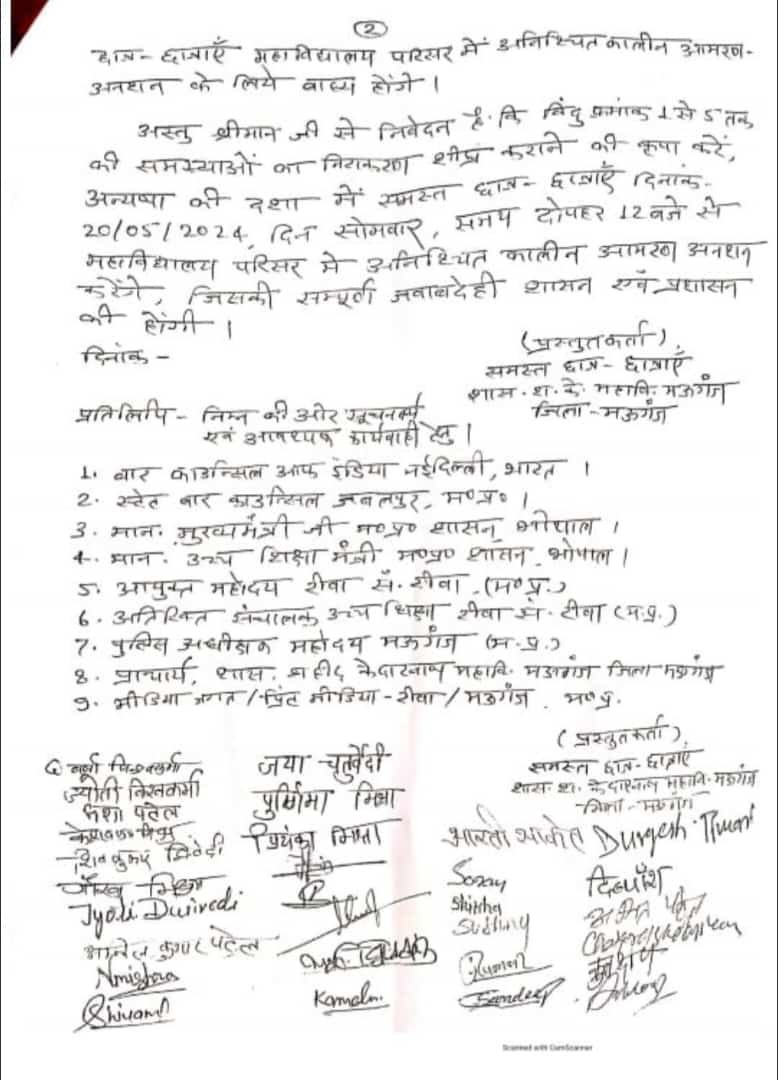 2
छात्र-छात्राएँ महाविद्यालय परिसर में अनिश्चितकालीन आमरण-
अनशन के लिये बाध्य होंगे।
अस्तु श्रीमान जी से निवेदन है कि बिंदु क्रमांक 1 से 5 तक
की समस्याओं का निराकरण शीघ्र कराने की कृपा करें,
अन्यथा की दशा में समस्त छात्र-छात्राएँ दिनांक-
20/05/2024, दिन सोमवार, समय दोपहर 12 बजे से
महाविद्यालय परिसर में अनिश्चित कालीन आमरण अनशन
करेंगे, जिसकी सम्पूर्ण जवाबदेही शासन एवं प्रशासन
की होंगी।
दिनांक -
(प्रस्तुतकर्ता)
समस्त छात्र-छात्राएँ
शास. श. के. महावि. मऊगंज
जिला-मऊगंज
प्रतिलिपि - निम्न की ओर सूचनार्थ
एवं आवश्यक कार्यवाही हेतु।
1. बार काउन्सिल आफ इंडिया नईदिल्ली, भारत ।
2. स्टेट बार काउन्सिल जबलपुर, म०प्र०।
3. मान. मुख्यमंत्री जी म०प्र० शासन, भोपाल ।
4. मान. उच्च शिक्षा मंत्री म०प्र० शासन, भोपाल।
5. आयुक्त महोदय रीवा सं. रीवा, (म०प्र.)
6. अतिरिक्त संचालक उच्च शिक्षा रीवा सं. रीवा (म.प्र.)
7. पुलिस अधीक्षक महोदय मऊगंज (म.प्र.)
8. प्राचार्य, शास. शहीद केदारनाथ महावि. मऊगंज जिला मऊगंज
9. मीडिया जगत/प्रिंट मीडिया-रीवा/मऊगंज, म०प्र.
(प्रस्तुतकर्ता)
समस्त छात्र-छात्राएँ
शास. श. केदारनाथ महावि. मऊगंज
जिला-मऊगंज
वर्षा विश्वकर्मा
ज्योती विश्वकर्मा
पटेल
शिवकुमार द्विवेदी
मिश्रा
Jyoti Dwivedi
कुमार पटेल
Shivam
जया चतुर्वेदी
पूर्णिमा मिश्रा
प्रियंका मिश्रा
Kamalm.
भारती साकेत
Durgesh Tiwari
Shikha
Kumar
Sandeep
दिव्यांश
Scanned with CamScanner